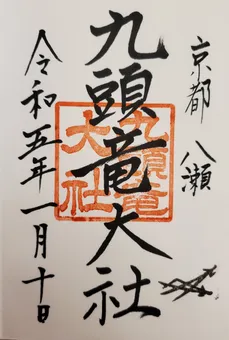 京都 八瀬
九頭竜大社
九頭竜
大社
令和五年一月十日